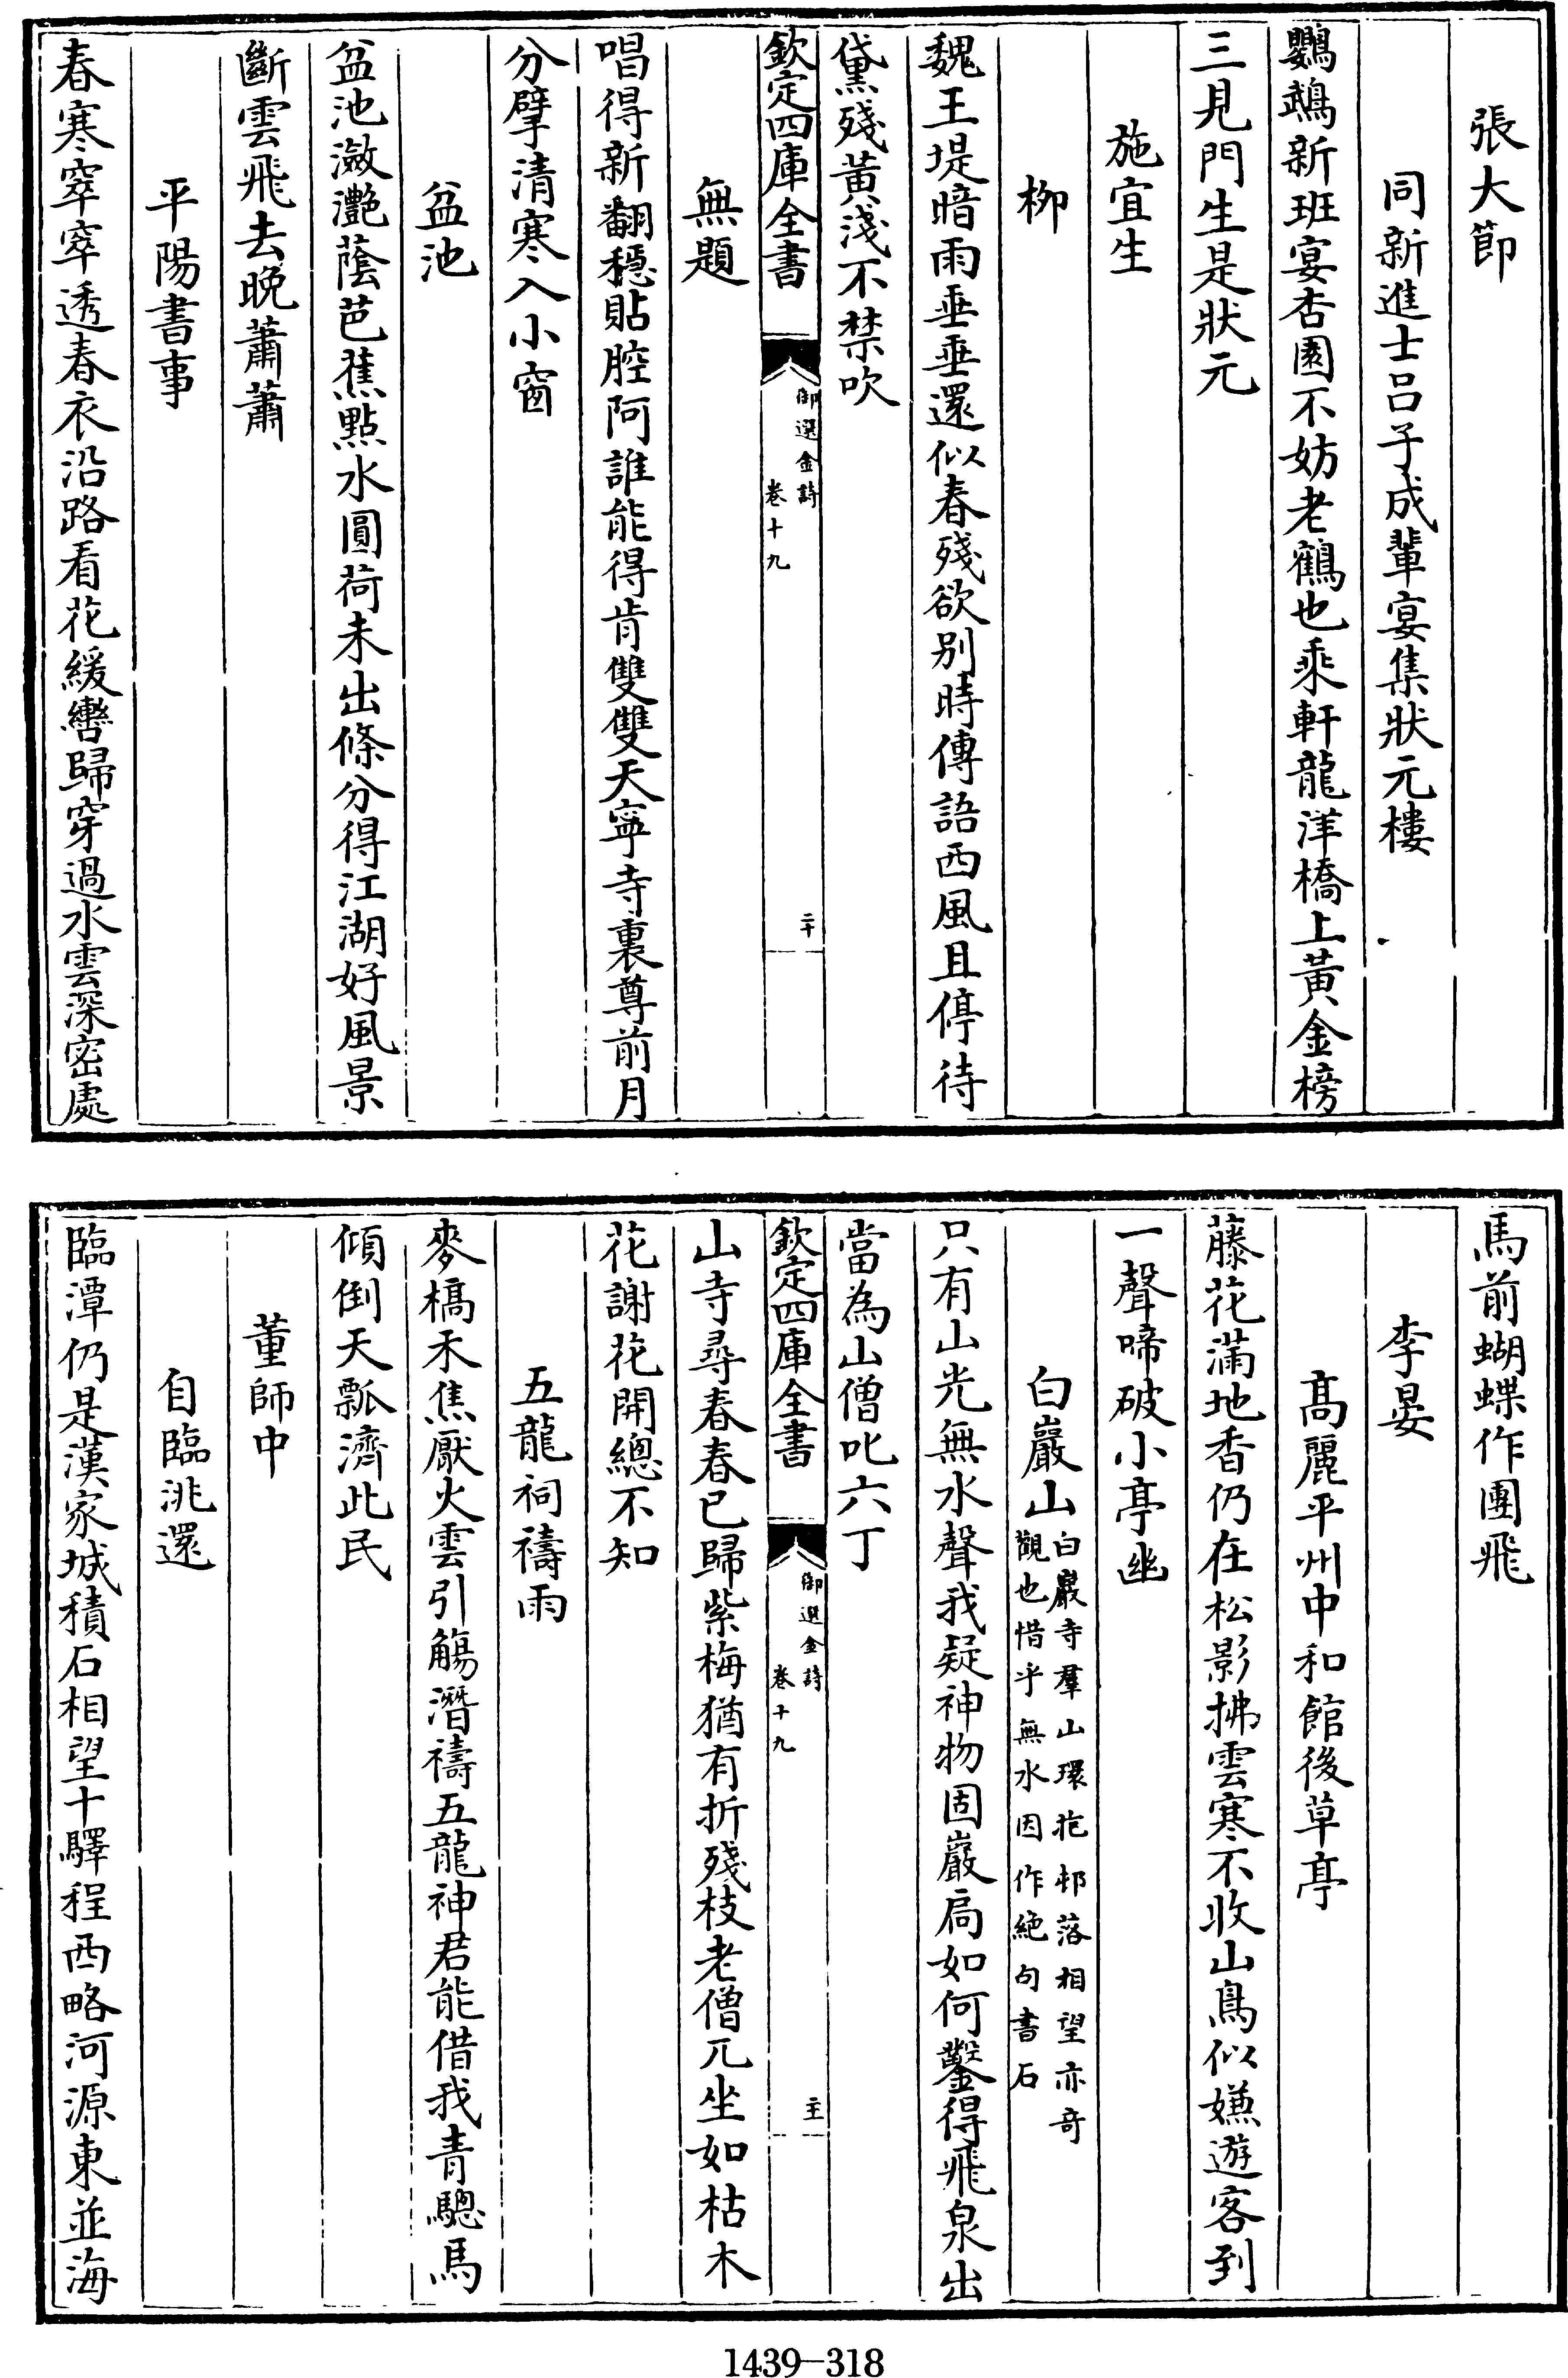 張大節
同新進士呂子成輩宴集狀元樓
鸚鵡新班宴杏園不妨老鶴也乘軒龍洋橋上黃金榜
三見門生是狀元
施宜生
柳
魏王堤暗雨垂垂還似春殘欲别時傳語西風且停待
黛殘黃淺不禁吹
欽定四庫全書
御選金詩
卷十九
二十
無題
唱得新翻穏貼腔阿誰能得肯雙雙天寧寺裏尊前月
分擘清寒入小窗
盆池
盆池瀲灔蔭芭蕉點水圓荷未出條分得江湖好風景
斷雲飛去晚蕭蕭
平陽書事
春寒窣窣透春衣沿路看花緩轡歸穿過水雲深密處
馬前蝴蝶作團飛
李晏
髙麗平州中和館後草亭
藤花滿地香仍在松影拂雲寒不收山鳥似嫌遊客到
一聲啼破小亭幽
白巖山
白巖寺羣山環抱邨落相望亦竒
觀也惜乎無水因作絶句書石
只有山光無水聲我疑神物固巖扃如何鑿得飛泉出
當為山僧叱六丁
欽定四庫全書
御選金詩
卷十九
二十一
山寺尋春春已歸紫梅猶有折殘枝老僧兀坐如枯木
花謝花開總不知
五龍祠禱雨
麥槁禾焦厭火雲引觴潛禱五龍神君能借我青驄馬
傾倒天瓢濟此民
董師中
自臨洮還
臨潭仍是漢家城積石相望十驛程西略河源東並海
1439-318